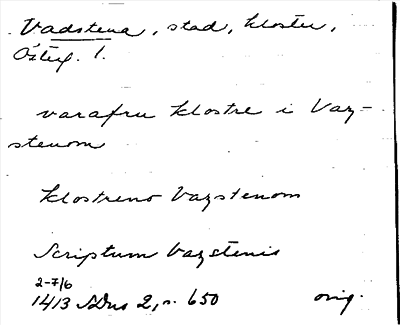 Vadstena, stad, kloster,
Östg. l.
varafru klostre i Vaz-
stenom
klostreno Vazstenom
Scriptum Vazstenis
2-7/6
1413 SDns 2, s. 650 orig.